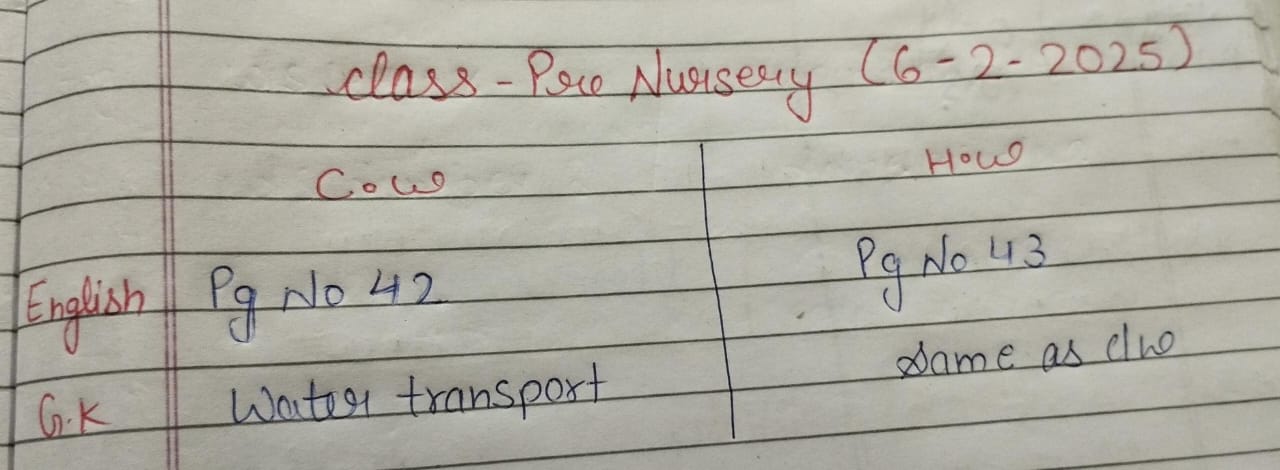 Class - Pre Nursery (6-2-2025)
C.w H.w
English Pg No 42 Pg No 43
G.K Water transport Same as c/w